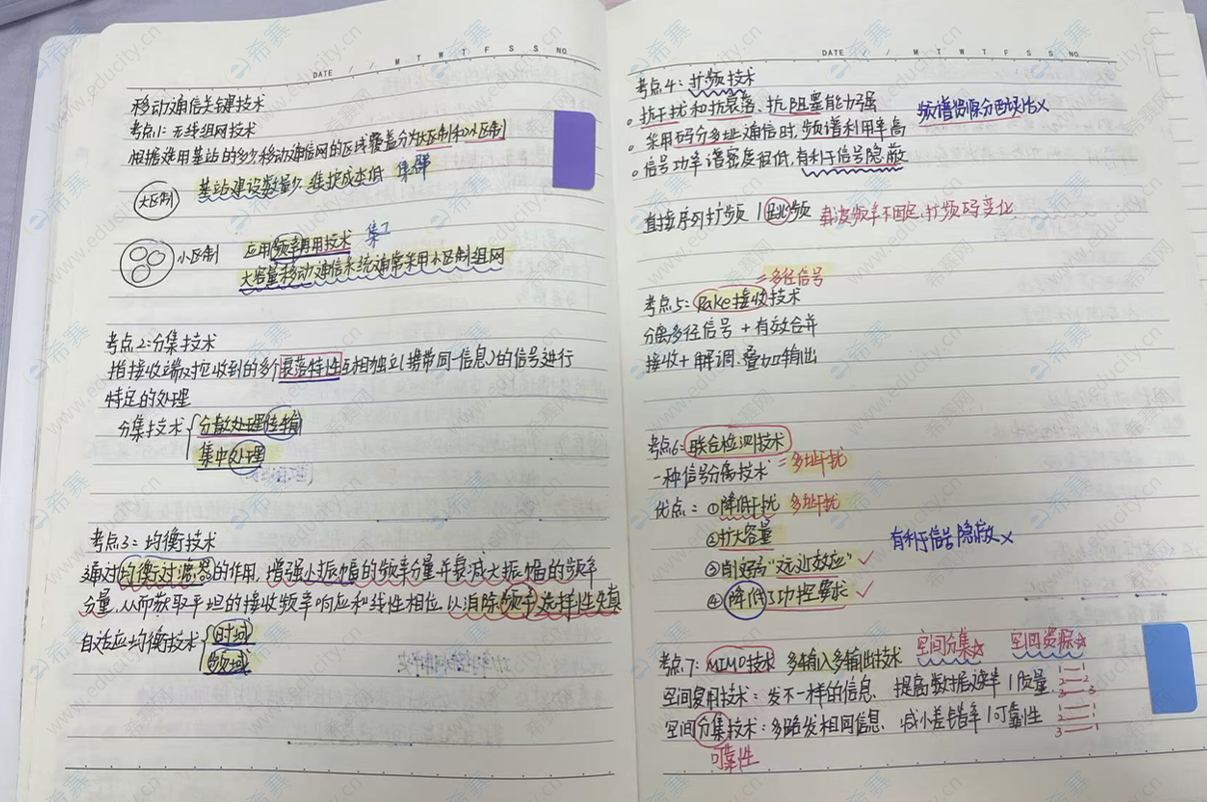 DATE / / M T W T F S S NO.
移动通信关键技术
考点1:无线组网技术
根据选用基站的多少,移动通信网的区域覆盖分为大区制和小区制
大区制 基站建设数量少、维护成本低 集群
小区制 应用频率再用技术
大容量移动通信系统通常采用小区制组网
考点2:分集技术
指接收端对应收到的多个衰落特性互相独立(携带同一信息)的信号进行
特定的处理
分集技术
分散处理传输
集中处理
考点3:均衡技术
通过均衡过滤器的作用,增强小振幅的频率分量并衰减大振幅的频率
分量,从而获取平坦的接收频率响应和线性相位,以消除频率选择性失真
自适应均衡技术
时域
频域
DATE / / M T W T F S S NO.
考点4:扩频技术
抗干扰和抗衰落、抗阻塞能力强 频谱资源分配灵活×
采用码分多址通信时,频谱利用率高
信号功率谱密度很低,有利于信号隐蔽
直接序列扩频 | 跳频 载波频率不固定,扩频码变化
=多径信号
考点5:Rake接收技术
分离多径信号+有效合并
接收+解调、叠加输出
考点6:联合检测技术
一种信号分离技术=多址干扰
优点:①降低干扰 多址干扰
②扩大容量
③削弱"远近效应"✓ 有利于信号隐蔽×
④降低功控要求✓
考点7:MIMO技术 多输入多输出技术 空间分集☆ 空间资源☆
空间复用技术:发不一样的信息、提高数据速率|质量 1—1 2—2 3—3
空间分集技术:多路发相同信息、减小差错率|可靠性 1—1 2—1 3—1
可靠性
希赛
www.educity.cn
希赛网